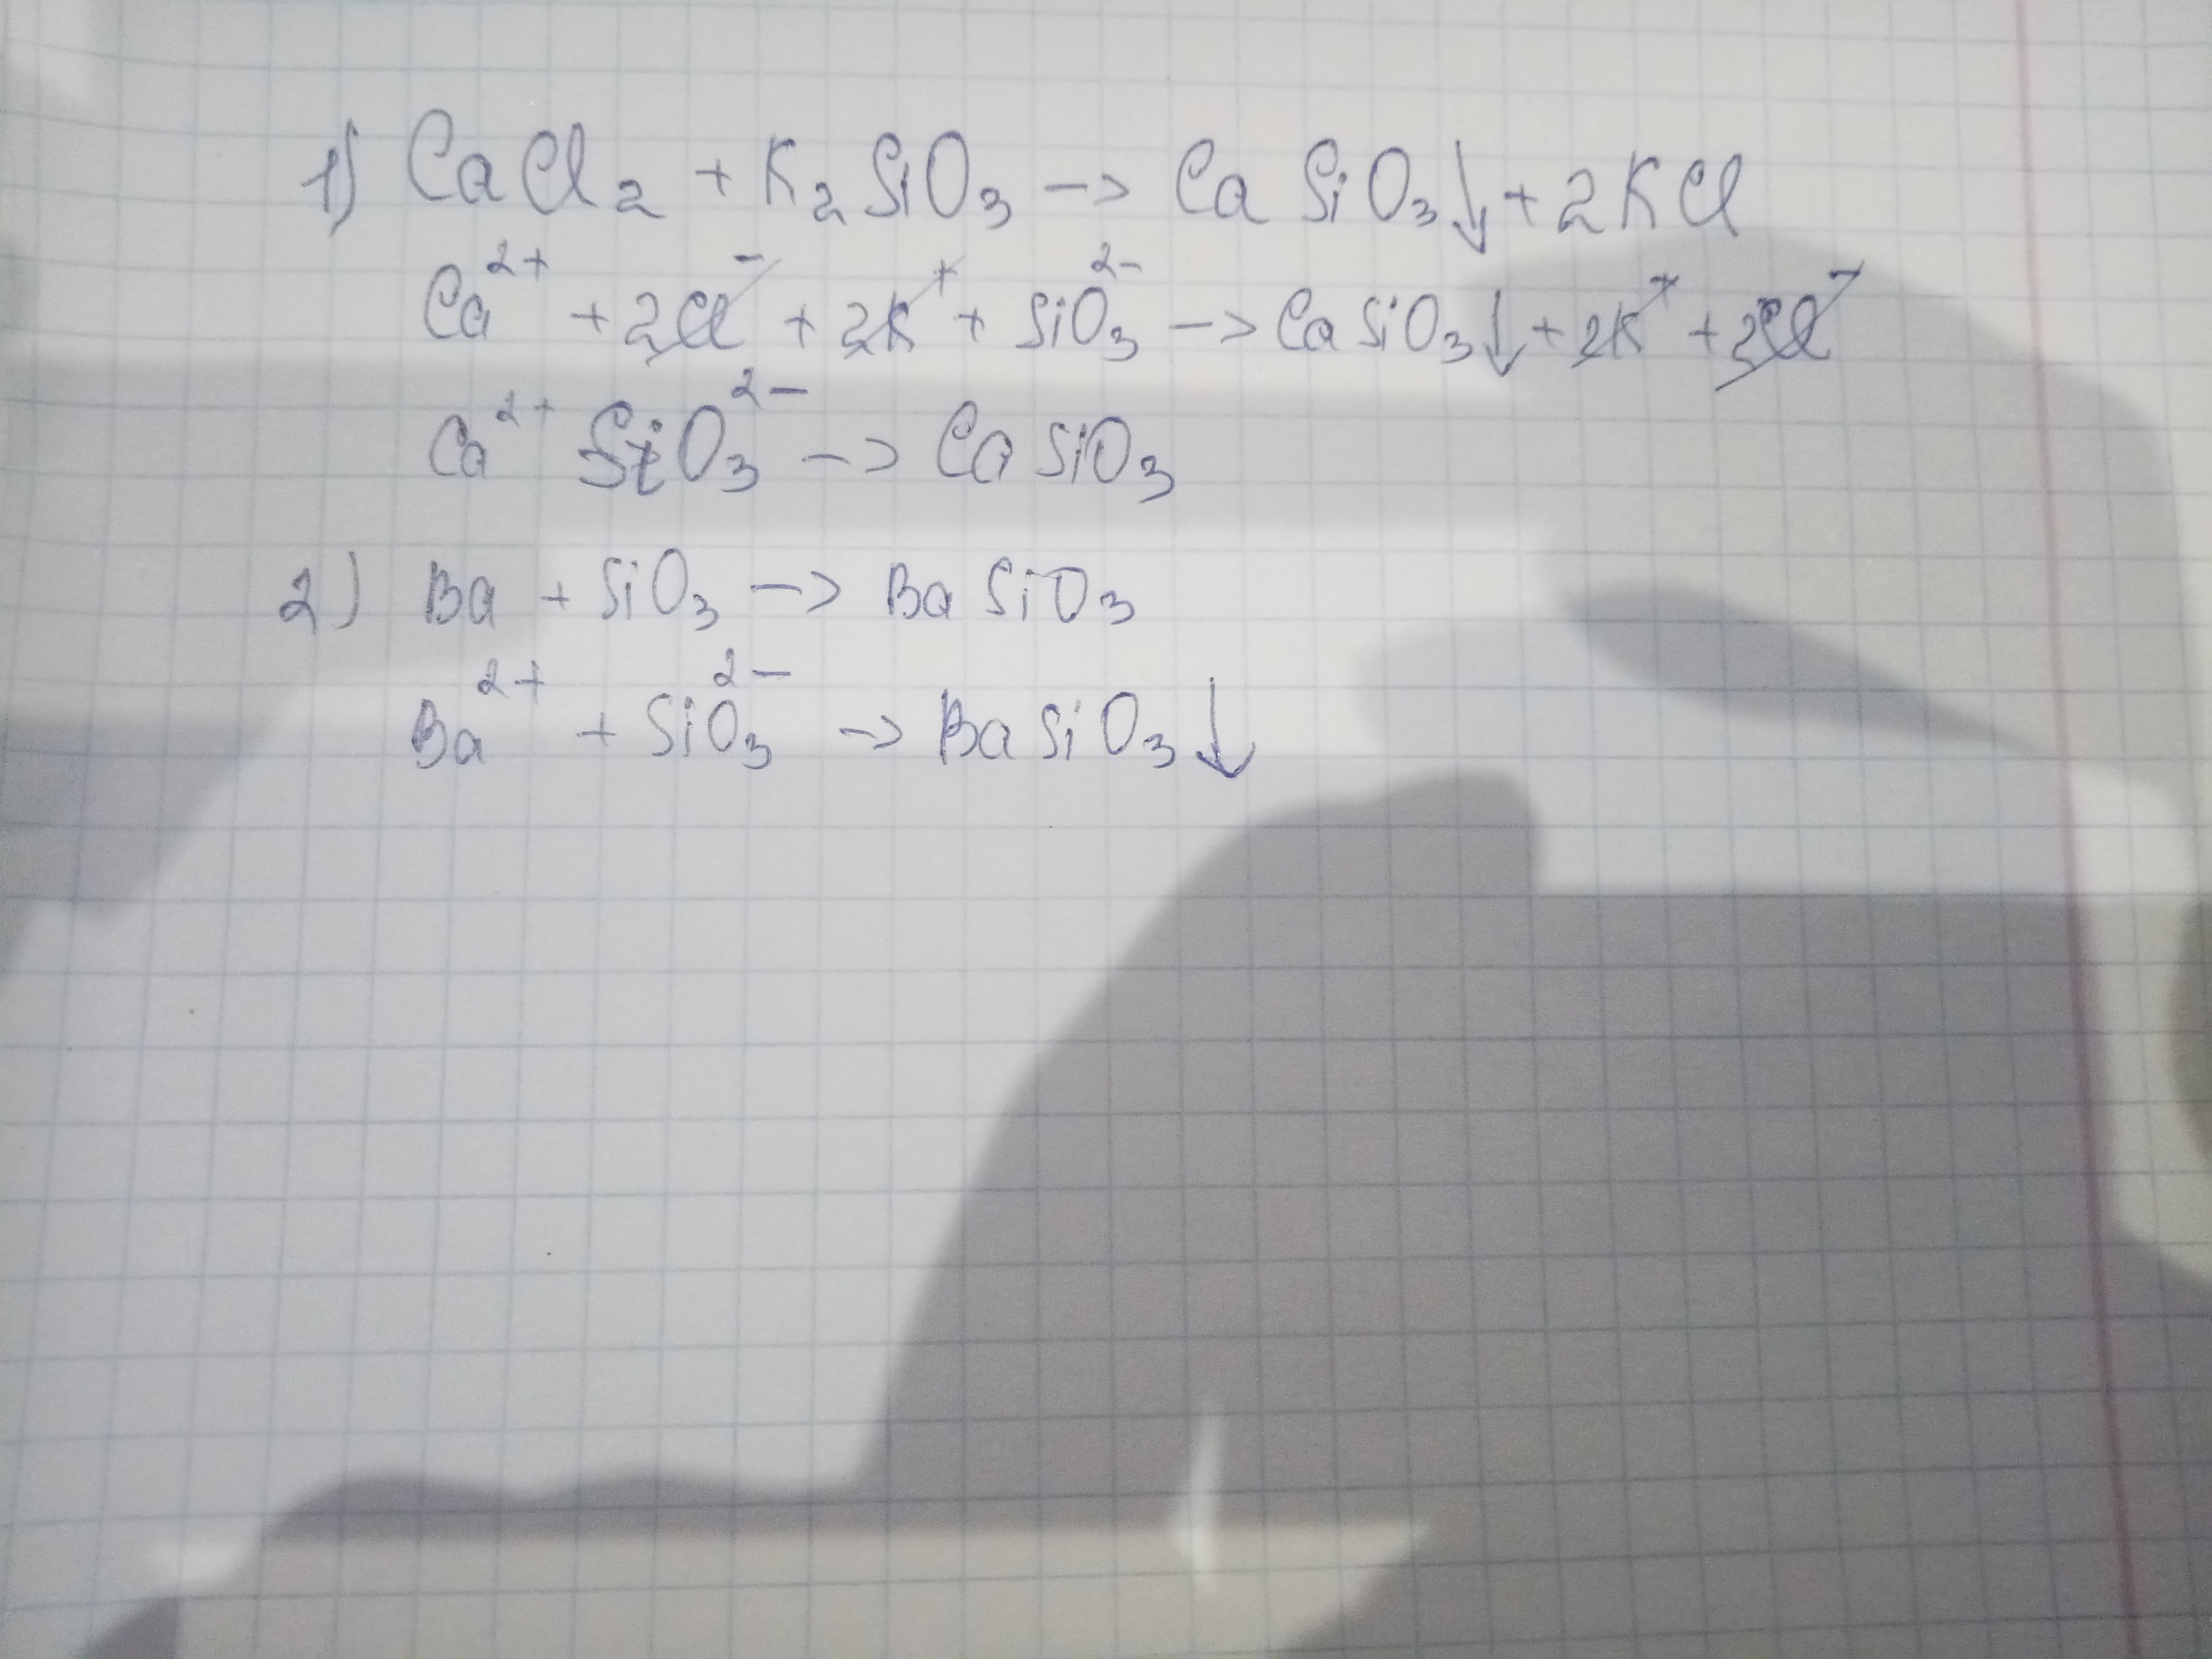 1) CaCl₂ + K₂SiO₃ -> CaSiO₃↓ + 2KCl
Ca²⁺ + 2Cl⁻ + 2K⁺ + SiO₃²⁻ -> CaSiO₃↓ + 2K⁺ + 2Cl⁻
Ca²⁺ SiO₃²⁻ -> CaSiO₃
2) Ba + SiO₃ -> BaSiO₃
Ba²⁺ + SiO₃²⁻ -> BaSiO₃↓